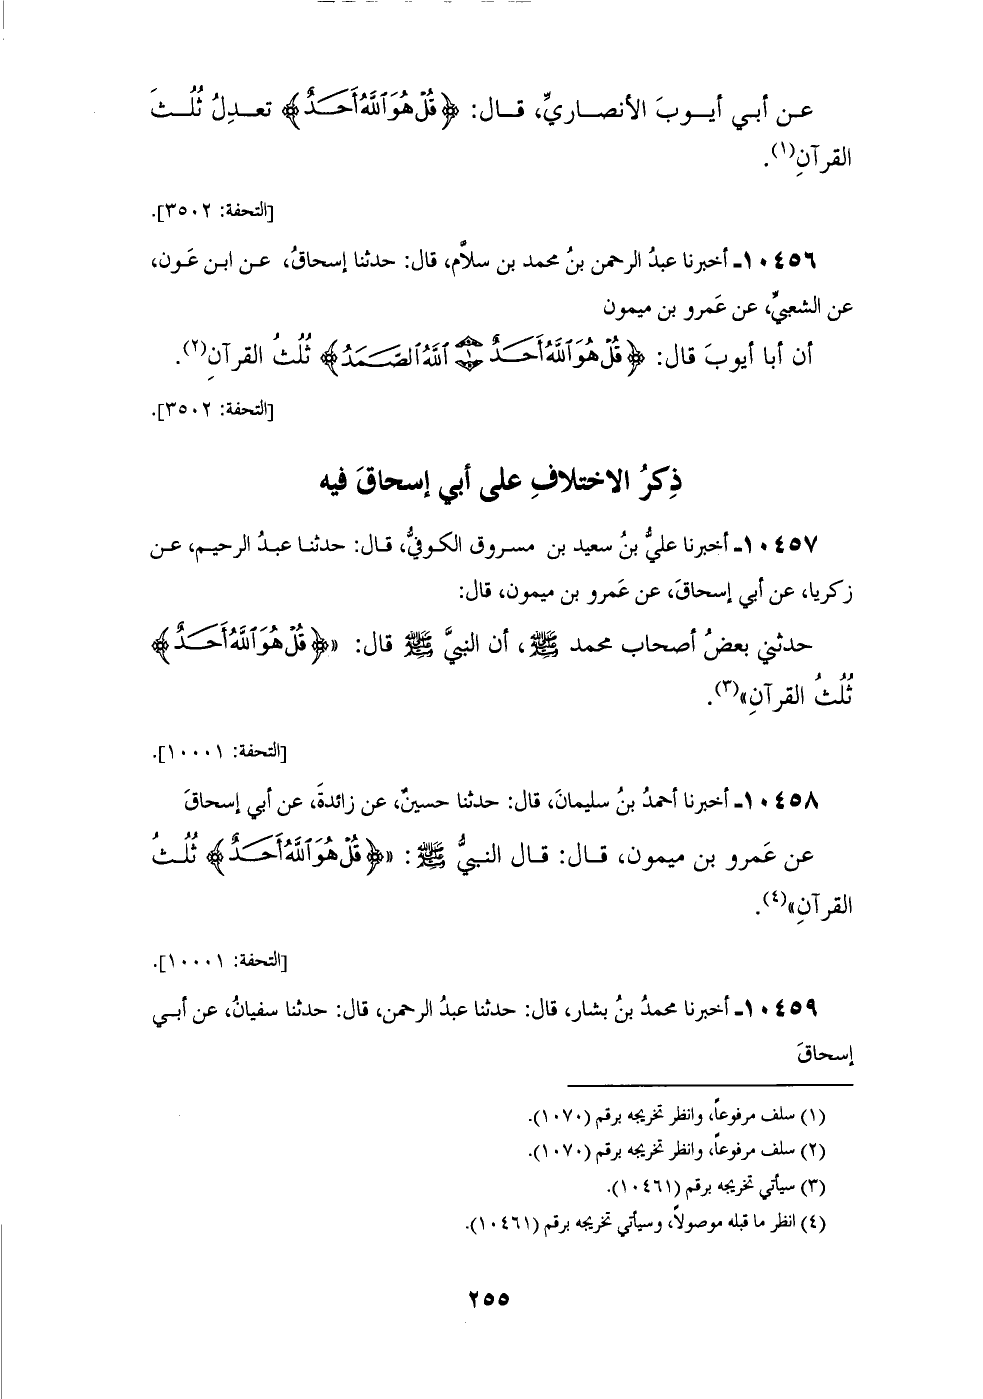 عن أبي أيوبَ الأنصاريِّ، قال: ﴿قُلْ هُوَ ٱللَّهُ أَحَدٌ﴾ تعدِلُ ثُلُثَ
القرآنِ(١).
[التحفة: ٣٥٠٢].
١٠٤٥٦ـ أخبرنا عبدُ الرحمن بنُ محمد بن سلاَّم، قال: حدثنا إسحاقُ، عن ابن عَون،
عن الشعبيِّ، عن عَمرو بن ميمون
أن أبا أيوبَ قال: ﴿قُلْ هُوَ ٱللَّهُ أَحَدٌ ۝١ ٱللَّهُ ٱلصَّمَدُ﴾ ثُلُثُ القرآنِ(٢).
[التحفة: ٣٥٠٢].
ذِكرُ الاختلافِ على أبي إسحاقَ فيه
١٠٤٥٧ـ أخبرنا عليُّ بنُ سعيد بن مسروق الكوفيُّ، قال: حدثنا عبدُ الرحيم، عن
زكريا، عن أبي إسحاقَ، عن عَمرو بن ميمون، قال:
حدثني بعضُ أصحاب محمد ﷺ، أن النبيَّ ﷺ قال: «﴿قُلْ هُوَ ٱللَّهُ أَحَدٌ﴾
ثُلُثُ القرآنِ»(٣).
[التحفة: ١٠٠٠١].
١٠٤٥٨ـ أخبرنا أحمدُ بنُ سليمانَ، قال: حدثنا حسينٌ، عن زائدةَ، عن أبي إسحاقَ
عن عَمرو بن ميمون، قال: قال النبيُّ ﷺ: «﴿قُلْ هُوَ ٱللَّهُ أَحَدٌ﴾ ثُلُثُ
القرآنِ»(٤).
[التحفة: ١٠٠٠١].
١٠٤٥٩ـ أخبرنا محمدُ بنُ بشار، قال: حدثنا عبدُ الرحمن، قال: حدثنا سفيانُ، عن أبي
إسحاقَ
(١) سلف مرفوعاً، وانظر تخريجه برقم (١٠٧٠).
(٢) سلف مرفوعاً، وانظر تخريجه برقم (١٠٧٠).
(٣) سيأتي تخريجه برقم (١٠٤٦١).
(٤) انظر ما قبله موصولاً، وسيأتي تخريجه برقم (١٠٤٦١).
٢٥٥